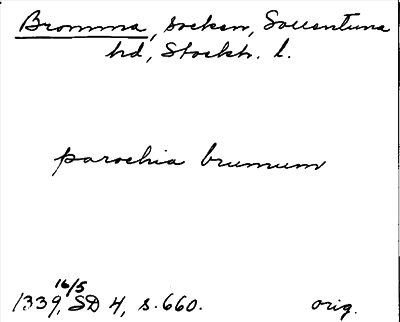 Bromma, socken, Sollentuna
hd, Stockh. l.
parochia brumum
16/5
1339, SD 4, s. 660. orig.